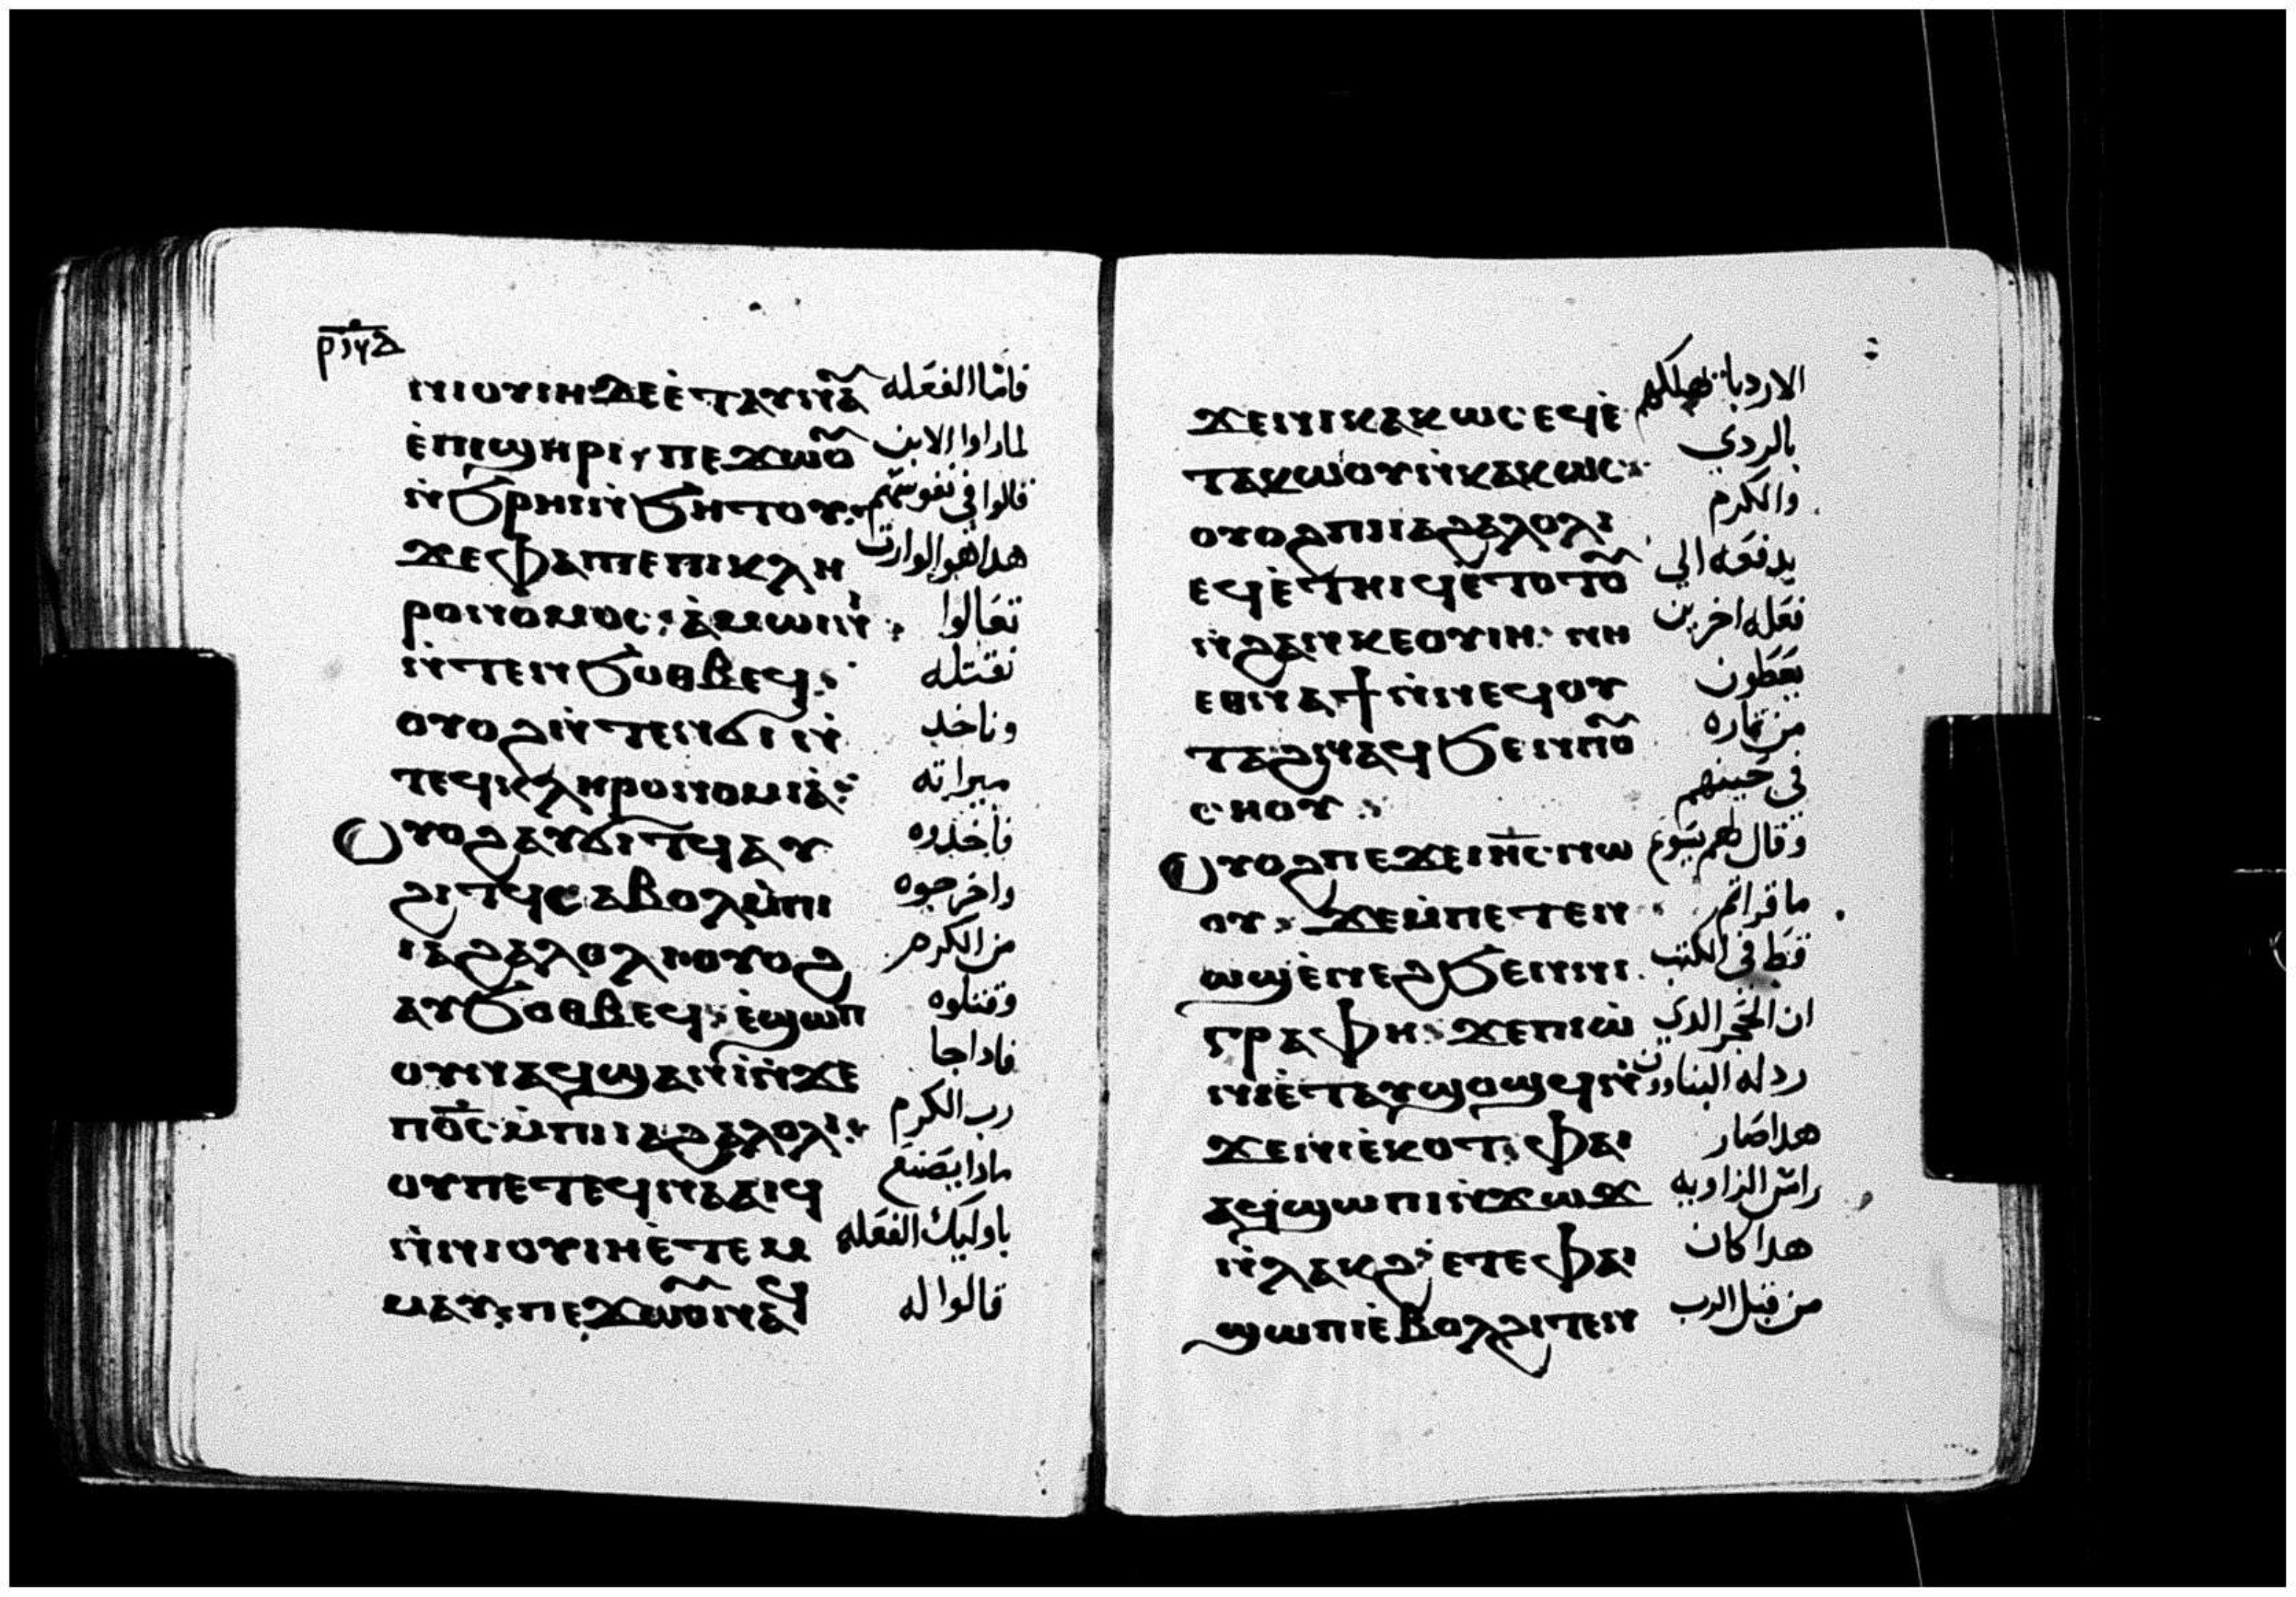 ⲣⲛⲇ
ⲛⲓⲟⲩⲓⲏ ⲇⲉ ⲉ̇ⲧⲁⲩⲛⲁ̄ فامّا الفعله
ⲉ̇ⲡⲓϣⲏⲣⲓ ⲡⲉϫⲱⲟ̄ لماراوا الابن
ⲛ̇ϧⲣⲏⲓ ⲛ̇ϧⲏⲧⲟⲩ قالوا في نفوسهم
ϫⲉ ⲫⲁⲓ ⲡⲉ ⲡⲓⲕⲗⲏ هدا هو الوارت
ⲣⲟⲛⲟⲙⲟⲥ ⲁ̇ⲙⲱⲓⲛⲓ تعالوا
ⲛ̇ⲧⲉⲛϧⲟⲑⲃⲉϥ نقتله
ⲟⲩⲟϩ ⲛ̇ⲧⲉⲛϭⲓ ⲛ̇ وناخد
ⲧⲉϥⲕⲗⲏⲣⲟⲛⲟⲙⲓⲁ̇ ميراته
ⲟⲩⲟϩ ⲁⲩϭⲓⲧϥ ⲁⲩ فاخدوه
ϩⲓⲧϥ ⲥⲁⲃⲟⲗ ⲙ̇ⲡⲓ واخرجوه
ⲓⲁϩⲁⲗⲟⲗⲓ ⲟⲩⲟϩ من الكرم
ⲁⲩϧⲟⲑⲃⲉϥ ⲉ̇ϣⲱⲡ وقتلوه
ⲟⲩⲛ ⲁϥϣⲁⲛⲓ̇ ⲛ̇ϫⲉ فاداجا
ⲡⲟ̄ⲥ̄ ⲙ̇ⲡⲓⲓⲁϩⲁⲗⲟⲗⲓ رب الكرم
ⲟⲩ ⲡⲉⲧⲉϥⲛⲁⲁⲓϥ مادا يصنع
ⲛ̇ⲛⲓⲟⲩⲓⲏ ⲉ̇ⲧⲉⲙ باوليك الفعله
ⲙⲁⲩ ⲡⲉϫⲱⲟ̄ ⲛⲁϥ قالوا له
ϫⲉ ⲛⲓⲕⲁⲕⲱⲥ ⲉϥⲉ̇ الارديا يهلكهم
ⲧⲁⲕⲱⲟⲩ ⲛ̇ⲕⲁⲕⲱⲥ بالردي
ⲟⲩⲟϩ ⲡⲓⲓⲁϩⲁⲗⲟⲗⲓ والكرم
ⲉϥⲉ̇ⲧⲏⲓϥ ⲉ̇ⲧⲟⲧⲟ̄ يدفعه الي
ⲛ̇ϩⲁⲛⲕⲉⲟⲩⲓⲏ ⲛⲏ فعله اخرين
ⲉⲑⲛⲁϯ ⲛ̇ⲛⲉϥⲟⲩ يعطون
ⲧⲁϩ ⲛⲁϥ ϧⲉⲛ ⲡⲟ̄ من تماره
ⲥⲏⲟⲩ في حينهم
ⲟⲩⲟϩ ⲡⲉϫⲉ ⲓⲏ̄ⲥ̄ ⲛⲱ وقال لهم يسوع
ⲟⲩ ϫⲉ ⲙ̇ⲡⲉⲧⲉⲛ ما قراتم
ⲱϣ ⲉ̇ⲛⲉϩ ϧⲉⲛ ⲛⲓ قط في الكتب
ⲅⲣⲁⲫⲏ ϫⲉ ⲡⲓⲱ̇ ان الحجر الدي
ⲛⲓ ⲉ̇ⲧⲁⲩϣⲟϣϥ ⲛ̇ ردله البناوون
ϫⲉ ⲛⲓⲉ̇ⲕⲟⲧ ⲫⲁⲓ هدا صار
ⲁϥϣⲱⲡⲓ ⲛ̇ϫⲱϫ راس الزاويه
ⲛ̇ⲗⲁⲕϩ ⲉⲧⲉ ⲫⲁⲓ هدا كان
ϣⲱⲡⲓ ⲉ̇ⲃⲟⲗϩⲓⲧⲉⲛ من قبل الرب